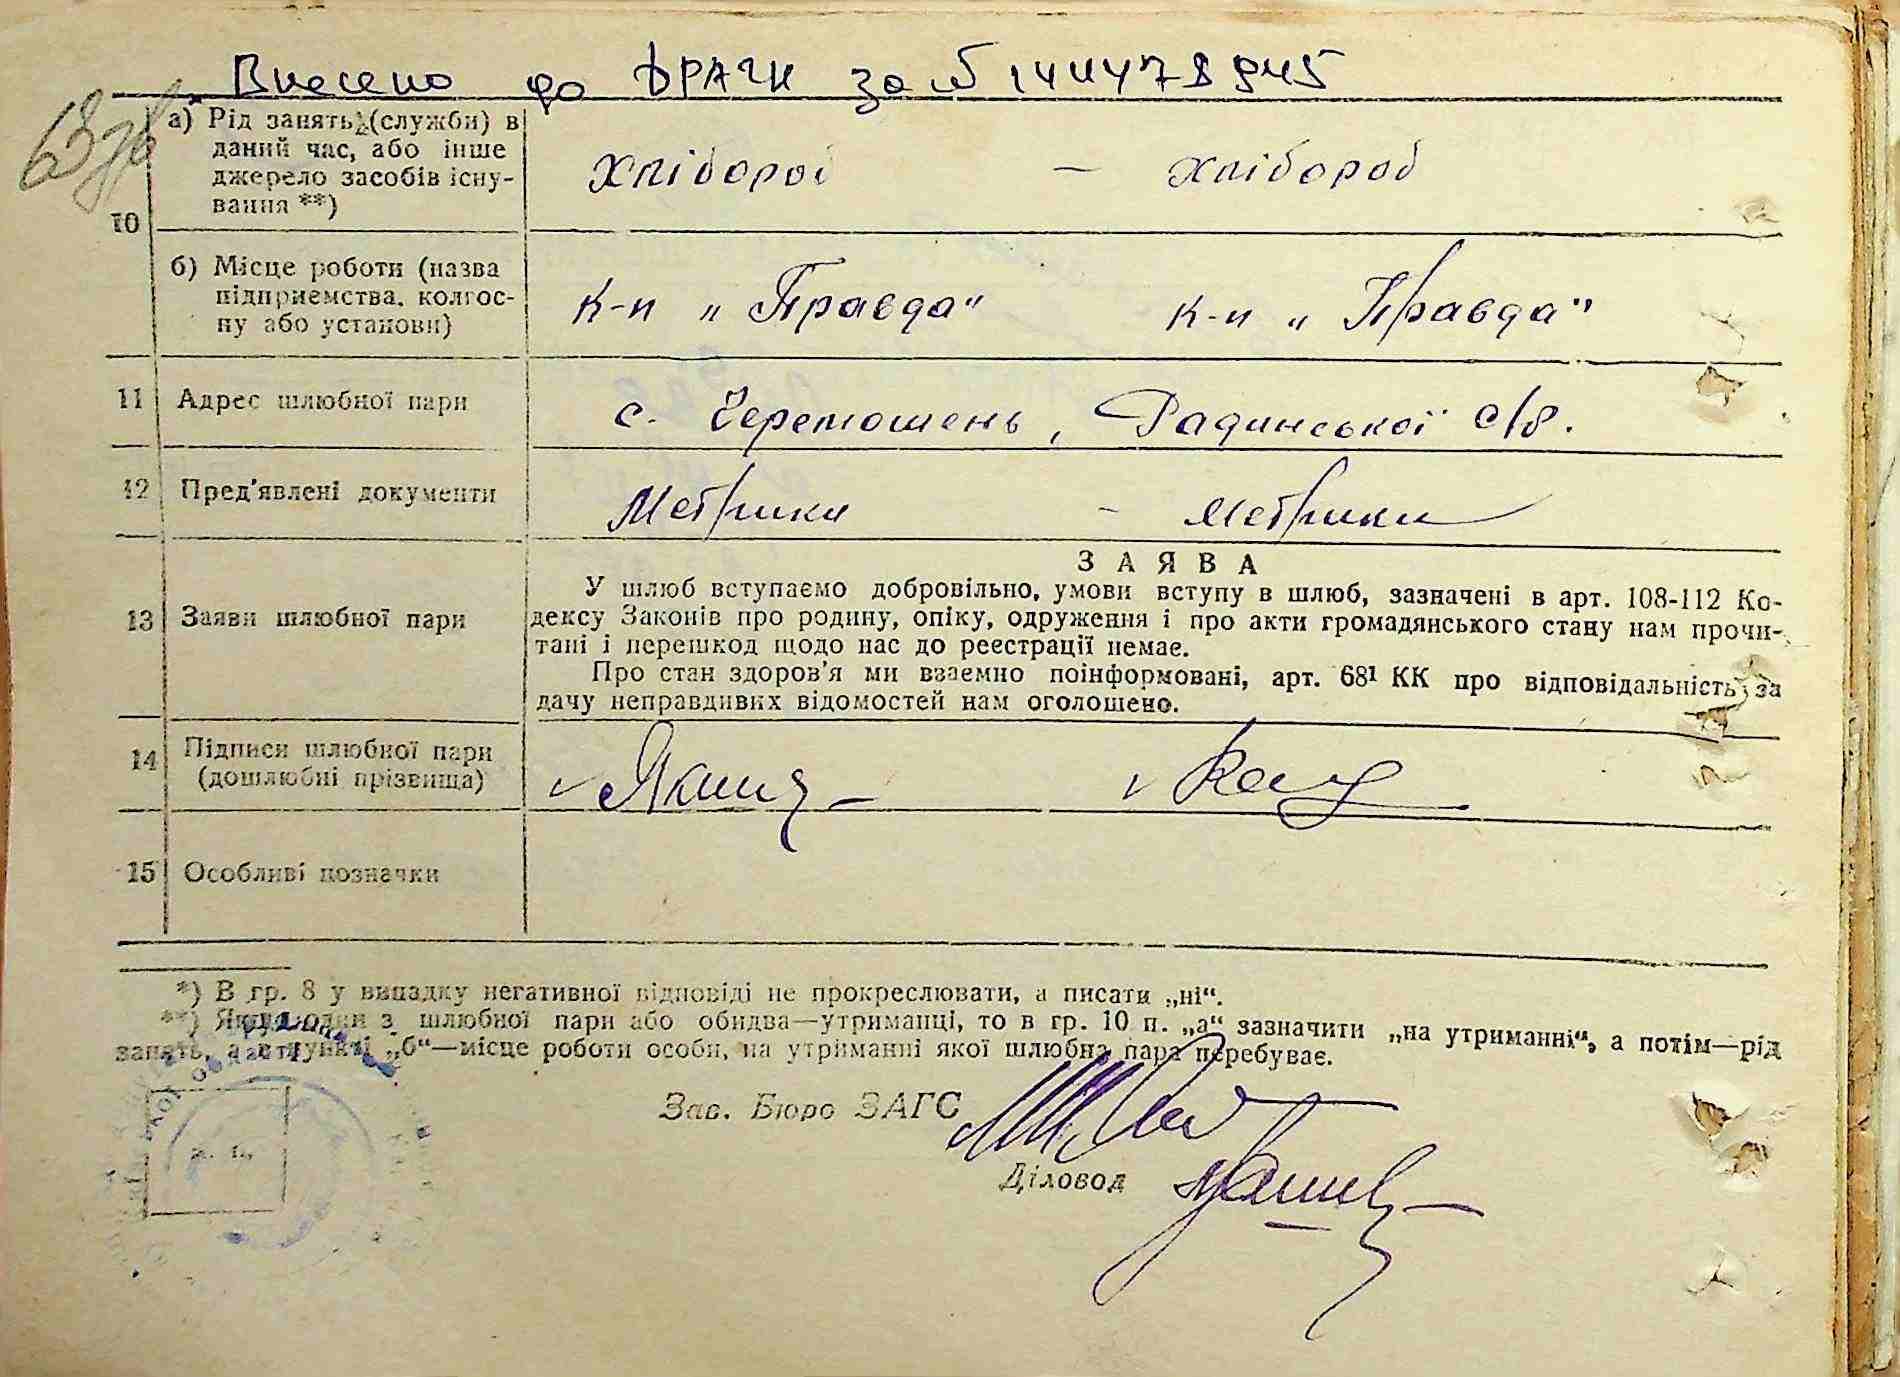 Внесено до ДРАЦС за №
10
а) Рід занять (служби) в
даний час, або інше
джерело засобів існу-
вання **)
Хлібороб — Хлібороб
б) Місце роботи (назва
підприємства, колгос-
пу або установи)
к-п „Правда“ к-п „Правда“
11 Адрес шлюбної пари
с. Черемошень, Радинської с/в.
12 Пред'явлені документи
Метрики - метрики
13 Заяви шлюбної пари
ЗАЯВА
У шлюб вступаємо добровільно, умови вступу в шлюб, зазначені в арт. 108-112 Ко-
дексу Законів про родину, опіку, одруження і про акти громадянського стану нам прочи-
тані і перешкод щодо нас до реєстрації немає.
Про стан здоров'я ми взаємно поінформовані, арт. 68¹ КК про відповідальність за
дачу неправдивих відомостей нам оголошено.
14 Підписи шлюбної пари
(дошлюбні прізвища)
15 Особливі позначки
*) В гр. 8 у випадку негативної відповіді не прокреслювати, а писати „ні“.
**) Якщо один з шлюбної пари або обидва—утриманці, то в гр. 10 п. „а“ зазначити „на утриманні“, а потім—рід
занять, а в пункті „б“—місце роботи особи, на утриманні якої шлюбна пара перебуває.
Зав. Бюро ЗАГС
Діловод
м. п.